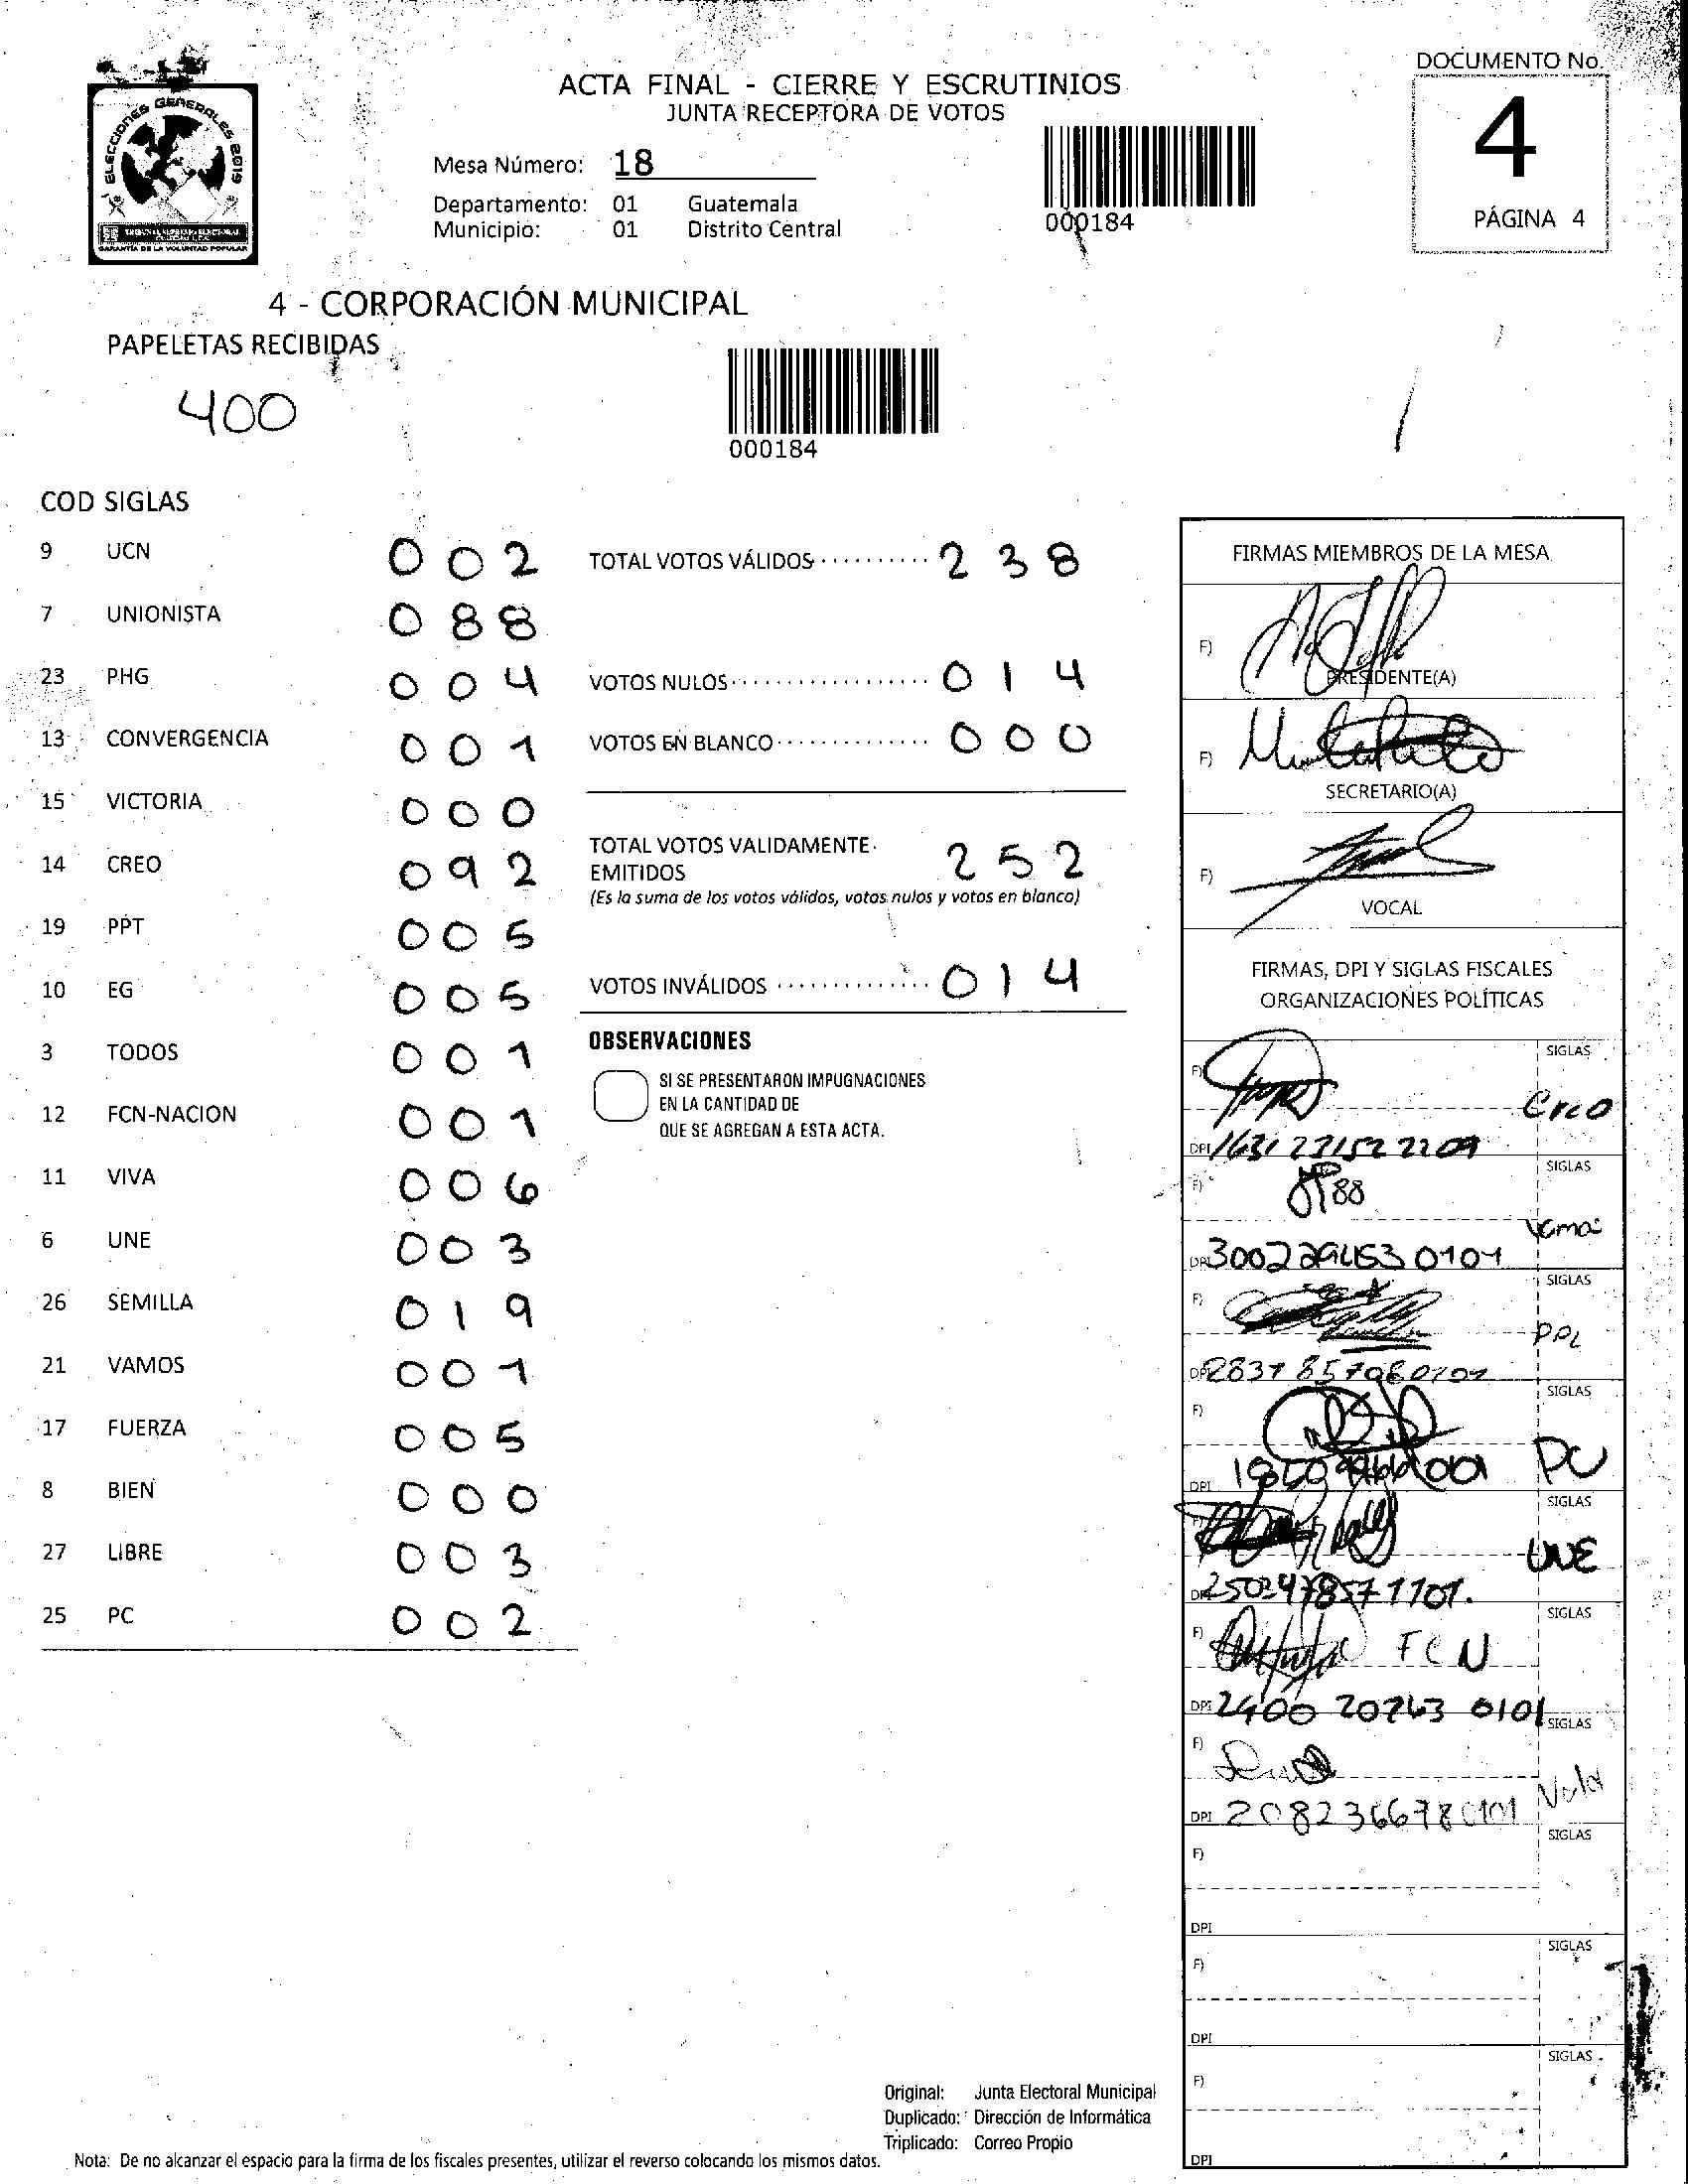 DOCUMENTO No.
4
PÁGINA 4
ELECCIONES GENERALES 2019
TRIBUNAL SUPREMO ELECTORAL
GARANTÍA DE LA VOLUNTAD POPULAR
ACTA FINAL - CIERRE Y ESCRUTINIOS
JUNTA RECEPTORA DE VOTOS
Mesa Número: 18
Departamento: 01 Guatemala
Municipio: 01 Distrito Central
000184
4 - CORPORACIÓN MUNICIPAL
PAPELETAS RECIBIDAS
400
000184
COD SIGLAS
9 UCN 002
7 UNIONISTA 088
23 PHG 004
13 CONVERGENCIA 001
15 VICTORIA 000
14 CREO 092
19 PPT 005
10 EG 005
3 TODOS 001
12 FCN-NACION 001
11 VIVA 006
6 UNE 003
26 SEMILLA 019
21 VAMOS 001
17 FUERZA 005
8 BIEN 000
27 LIBRE 003
25 PC 002
TOTAL VOTOS VÁLIDOS 238
VOTOS NULOS 014
VOTOS EN BLANCO 000
TOTAL VOTOS VALIDAMENTE
EMITIDOS 252
(Es la suma de los votos válidos, votos nulos y votos en blanco)
VOTOS INVÁLIDOS 014
OBSERVACIONES
SI SE PRESENTARON IMPUGNACIONES
EN LA CANTIDAD DE
QUE SE AGREGAN A ESTA ACTA.
FIRMAS MIEMBROS DE LA MESA
F)
PRESIDENTE(A)
F)
SECRETARIO(A)
F)
VOCAL
FIRMAS, DPI Y SIGLAS FISCALES
ORGANIZACIONES POLÍTICAS
F) SIGLAS
Creo
DPI
F) SIGLAS
DPI
F) SIGLAS
PPL
DPI
F) SIGLAS
PC
DPI
F) SIGLAS
UNE
DPI
F) SIGLAS
FCN
DPI 2400 20763 0101
F) SIGLAS
DPI 208236678 0101
F) SIGLAS
DPI
F) SIGLAS
DPI
F) SIGLAS
DPI
Original: Junta Electoral Municipal
Duplicado: Dirección de Informática
Triplicado: Correo Propio
Nota: De no alcanzar el espacio para la firma de los fiscales presentes, utilizar el reverso colocando los mismos datos.